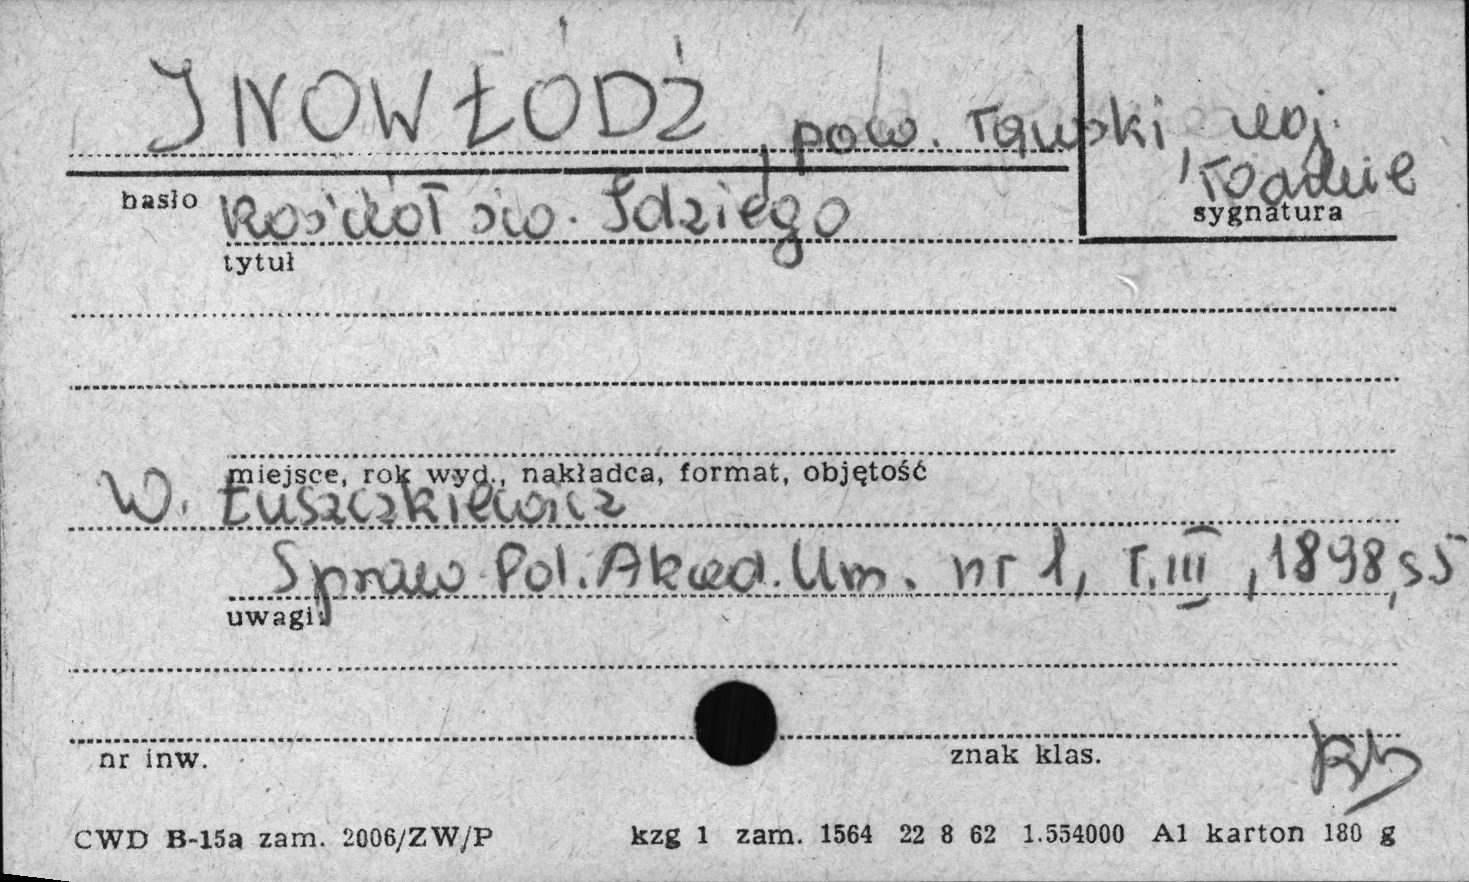 INOWŁÓDŹ, pow. rawski, woj.
łódzkie
hasło kościół św. Idziego
sygnatura
tytuł
miejsce, rok wyd., nakładca, format, objętość
W. Łuszczkiewicz
Spraw. Pol. Akad. Um. nr 1, T. III, 1898, s 5
uwagi:
nr inw.
znak klas.
CWD B-15a zam. 2006/ZW/P kzg 1 zam. 1564 22 8 62 1.554000 A1 karton 180 g